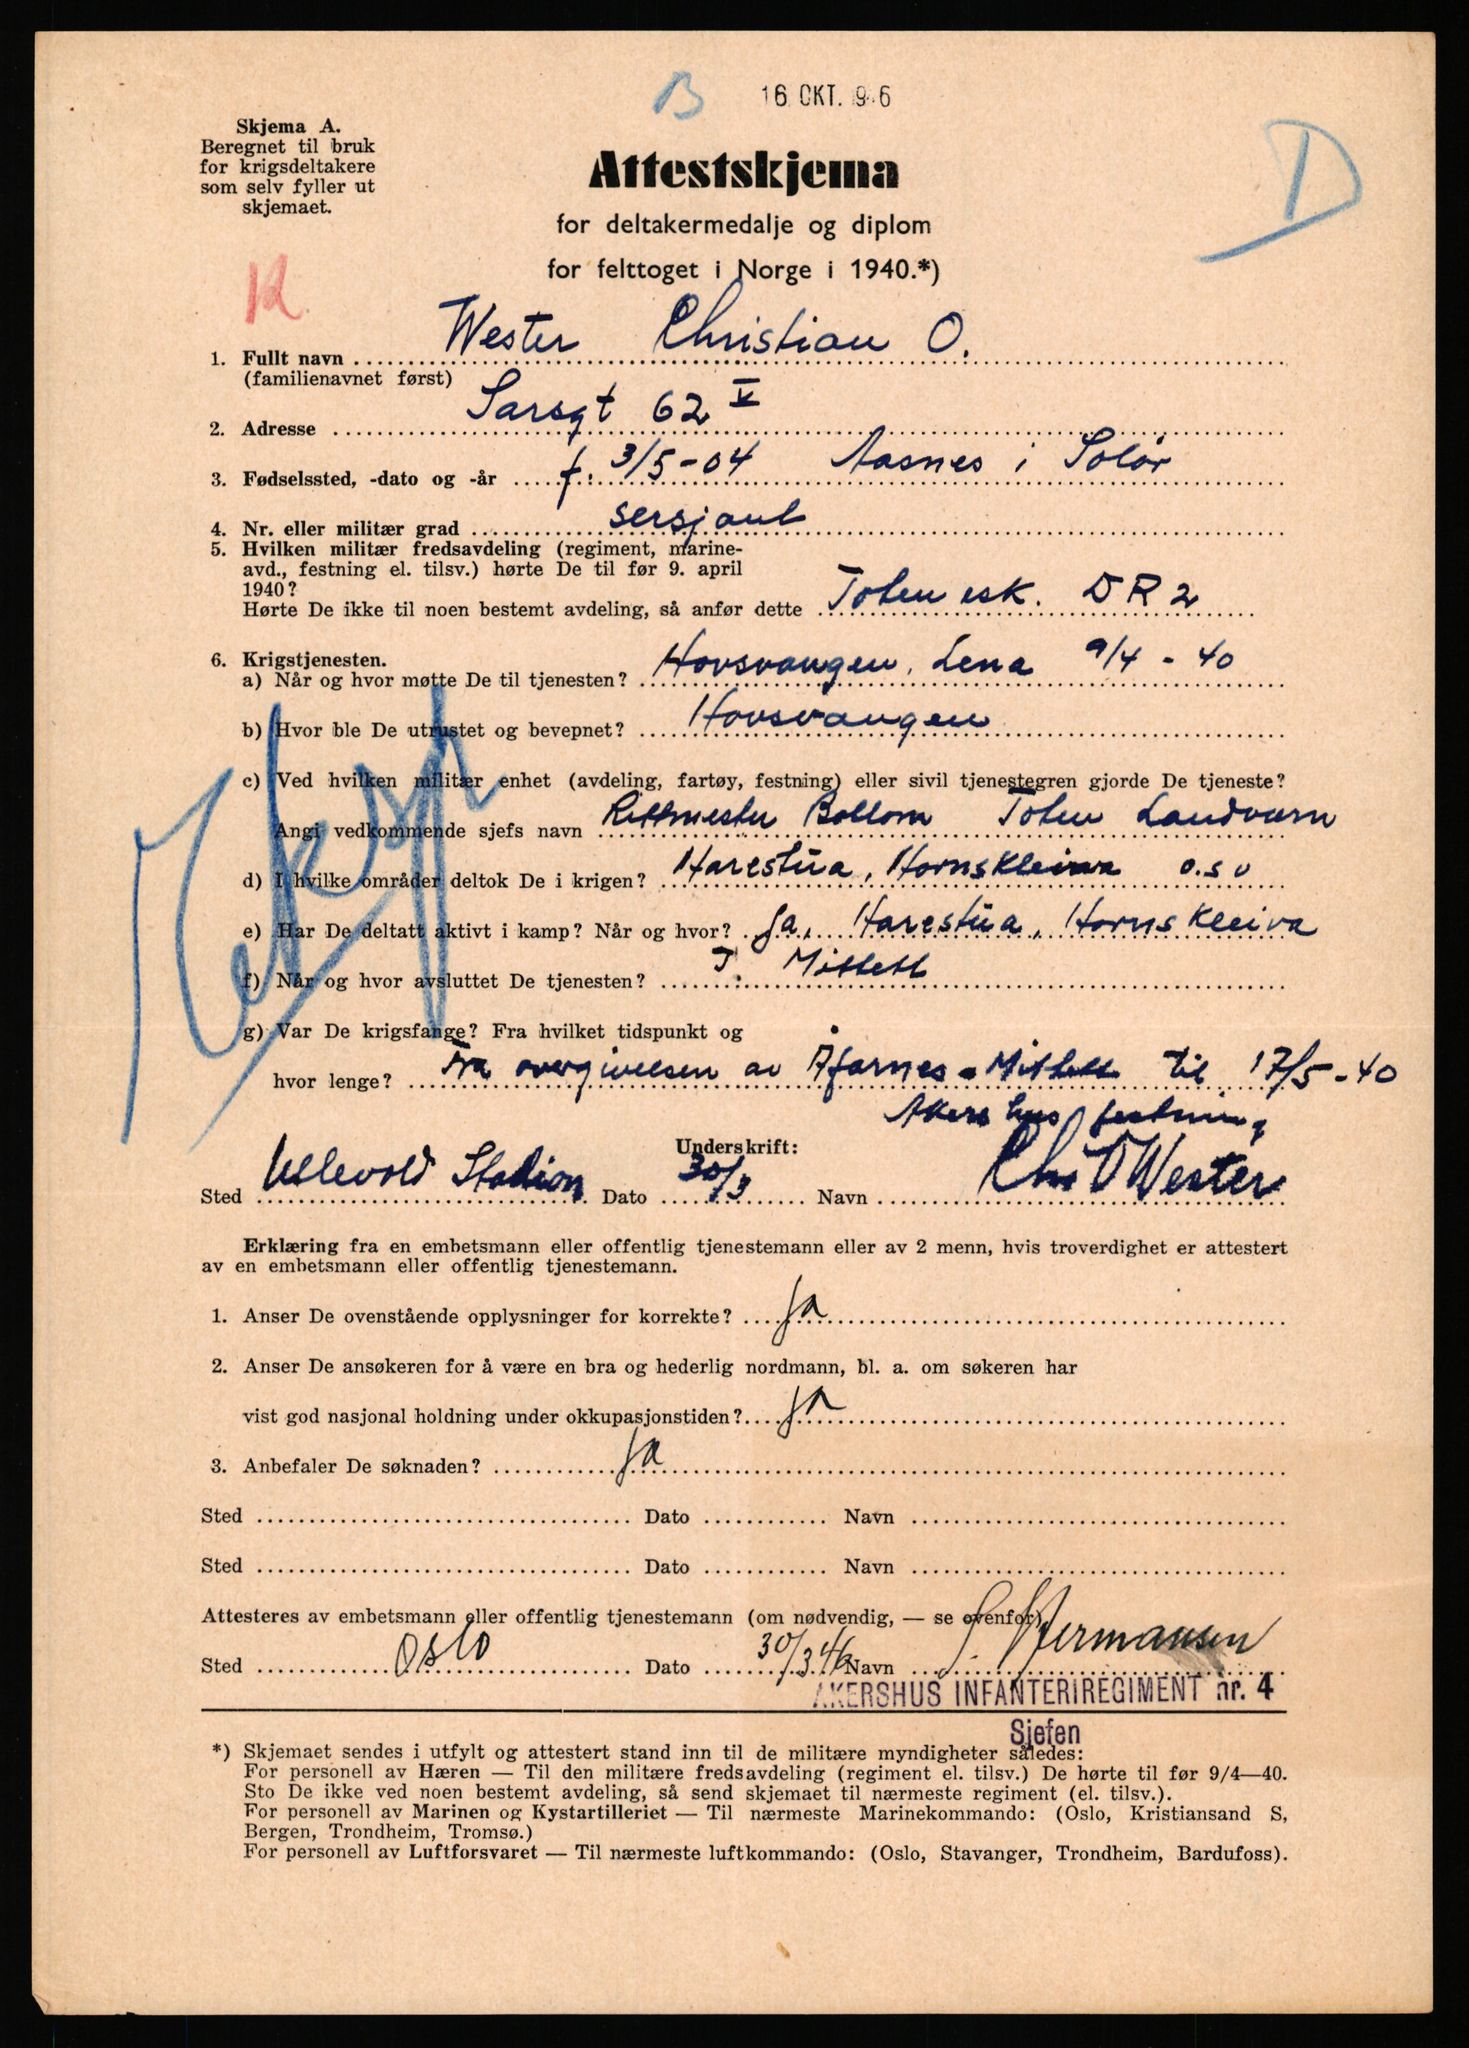 B 16 OKT. 1946
Skjema A.
Beregnet til bruk
for krigsdeltakere
som selv fyller ut
skjemaet.
D
Attestskjema
for deltakermedalje og diplom
for felttoget i Norge i 1940.*)
1. Fullt navn Wester Christian O.
(familienavnet først)
2. Adresse Sarsgt 62 V
3. Fødselssted, -dato og -år f. 3/5-04 Aasnes i Solør
4. Nr. eller militær grad sersjant
5. Hvilken militær fredsavdeling (regiment, marine-
avd., festning el. tilsv.) hørte De til før 9. april
1940?
Hørte De ikke til noen bestemt avdeling, så anfør dette Toten esk. DR2
6. Krigstjenesten.
a) Når og hvor møtte De til tjenesten? Hovsvangen, Lena 9/4 - 40
b) Hvor ble De utrustet og bevepnet? Hovsvangen
c) Ved hvilken militær enhet (avdeling, fartøy, festning) eller sivil tjenestegren gjorde De tjeneste?
Angi vedkommende sjefs navn Rittmester Bollom Toten Landvern
d) I hvilke områder deltok De i krigen? Harestua, Hornskleiva o.s v
e) Har De deltatt aktivt i kamp? Når og hvor? Ja, Harestua, Hornskleiva
f) Når og hvor avsluttet De tjenesten? I. Mittett
g) Var De krigsfange? Fra hvilket tidspunkt og
hvor lenge? Fra overgivelsen av Åfarnes - Mittett til 17/5-40
Akershus festning
Underskrift:
Sted Ullevold Stadion Dato 30/3 Navn Chr O Wester
Erklæring fra en embetsmann eller offentlig tjenestemann eller av 2 menn, hvis troverdighet er attestert
av en embetsmann eller offentlig tjenestemann.
1. Anser De ovenstående opplysninger for korrekte? Ja
2. Anser De ansøkeren for å være en bra og hederlig nordmann, bl. a. om søkeren har
vist god nasjonal holdning under okkupasjonstiden? Ja
3. Anbefaler De søknaden? Ja
Sted Dato Navn
Sted Dato Navn
Attesteres av embetsmann eller offentlig tjenestemann (om nødvendig, — se ovenfor).
Sted Oslo Dato 30/3 46 Navn Hermansen
AKERSHUS INFANTERIREGIMENT nr. 4
Sjefen
*) Skjemaet sendes i utfylt og attestert stand inn til de militære myndigheter således:
For personell av Hæren — Til den militære fredsavdeling (regiment el. tilsv.) De hørte til før 9/4—40.
Sto De ikke ved noen bestemt avdeling, så send skjemaet til nærmeste regiment (el. tilsv.).
For personell av Marinen og Kystartilleriet — Til nærmeste Marinekommando: (Oslo, Kristiansand S,
Bergen, Trondheim, Tromsø.)
For personell av Luftforsvaret — Til nærmeste luftkommando: (Oslo, Stavanger, Trondheim, Bardufoss).